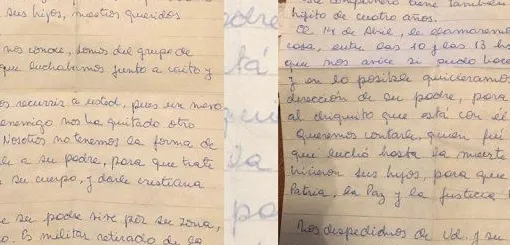 sus hijos, nuestros queridos
nos conoce, somos del grupo de
que luchabamos junto a
os recurrir a usted, pues un nuevo
enemigo nos ha quitado otro
Nosotros no tenemos la forma de
a su padre, para que trate
su cuerpo, y darle cristiana
su padre vive por su zona,
Es militar retirado de la
tá
pa
compañero tiene también
hijito de cuatro años.
El 14 de Abril, le llamaremos
casa, entre las 10 y las 13 hs
que nos avise si pudo hace
y en lo posible quisieramos
dirección de su padre, para
al chiquito que está con él
Queremos contarle, quien fué
que luchó hasta la muerte
hicieron sus hijos, para que
Patria, la Paz y la justicia
Nos despedimos de Ud. y su